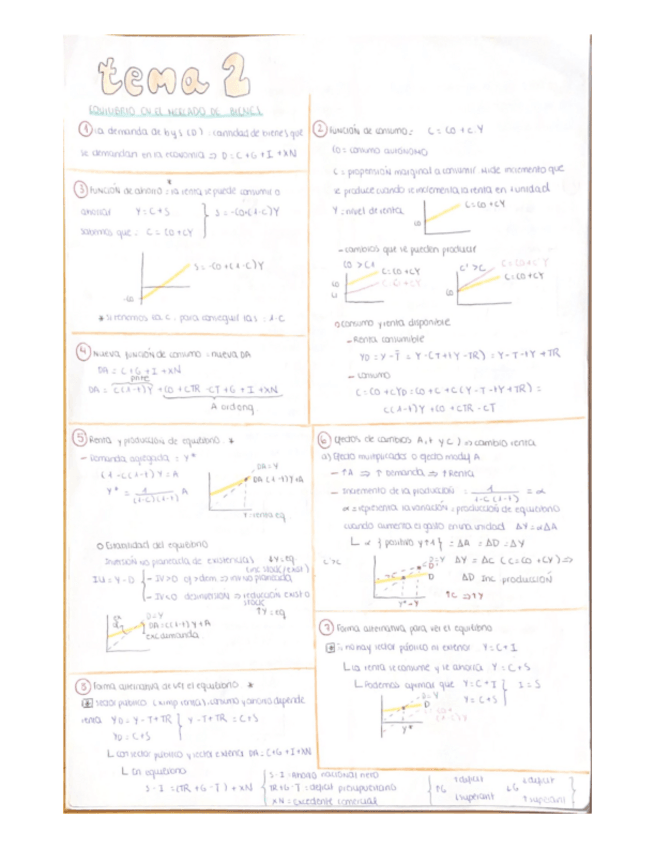 tema 2
EQUILIBRIO EN EL MERCADO DE BIENES
① La demanda de b y s (D): cantidad de bienes que
se demandan en la economía ⇒ D = C + G + I + XN
② Función de consumo: C = C0 + c·Y
C0 = consumo autónomo
c = propensión marginal a consumir. Mide incremento que
se produce cuando se incrementa la renta en 1 unidad
Y: nivel de renta
C = C0 + cY
- cambios que se pueden producir
C0 > C1
C = C0 + cY
C = C1 + cY
c' > c
C = C0 + c'Y
C = C0 + cY
o consumo y renta disponible
- Renta consumible
YD = Y - T = Y - (T + tY - TR) = Y - T - tY + TR
- consumo
C = C0 + cYD = C0 + c(Y - T - tY + TR) =
c(1-t)Y + C0 + cTR - cT
③ Función de ahorro: la renta se puede consumir o
ahorrar Y = C + S
sabemos que: C = C0 + cY
S = -C0 + (1-c)Y
S = -C0 + (1-c)Y
-C0
* si tenemos la c, para conseguir la s: 1-c
④ Nueva función de consumo: nueva DA
DA = C + G + I + XN
pnte
DA = c(1-t)Y + C0 + cTR - cT + G + I + XN
A ord orig
⑤ Renta y producción de equilibrio *
- Demanda agregada = Y*
(1 - c(1-t))Y = A
Y* = 1 / (1-c(1-t)) A
DA = Y
DA c(1-t)Y + A
Y = renta eq
o Estabilidad del equilibrio
Inversión no planeada de existencias
IU = Y - D
- IV>0 of > dem ⇒ inv no planeada
- IV<0 desinversión ⇒ reducción exist o
stock
↑Y = eq
D = Y
DA = c(1-t)Y + A
exc demanda
⑥ Efectos de cambios A, t y c) ⇒ cambio renta
a) Efecto multiplicador o efecto modif A
- ↑A ⇒ ↑ Demanda ⇒ ↑ Renta
- Incremento de la producción: 1 / (1-c(1-t)) = α
α = representa la variación = producción de equilibrio
cuando aumenta el gasto en una unidad ΔY = αΔA
L α { positivo y ≠ 1 } = ΔA = ΔD = ΔY
c'>c
ΔY = ΔC (C = C0 + cY) ⇒
ΔD Inc producción
↑C ⇒ ↑Y
⑦ Forma alternativa para ver el equilibrio
* Si no hay sector público ni exterior Y = C + I
L la renta se consume y se ahorra Y = C + S
L Podemos afirmar que Y = C + I
Y = C + S
I = S
D = Y
D
Y*
⑧ Forma alternativa de ver el equilibrio *
* sector público
renta YD = Y - T + TR
YD = C + S
Y - T + TR = C + S
L con sector público y sector exterior DA = C + G + I + XN
L En equilibrio
S - I = (TR + G - T) + XN
S - I = Ahorro nacional neto
TR + G - T = déficit presupuestario
XN = Excedente comercial
↑G
↑déficit
↓superávit
↓G
↓déficit
↑superávit